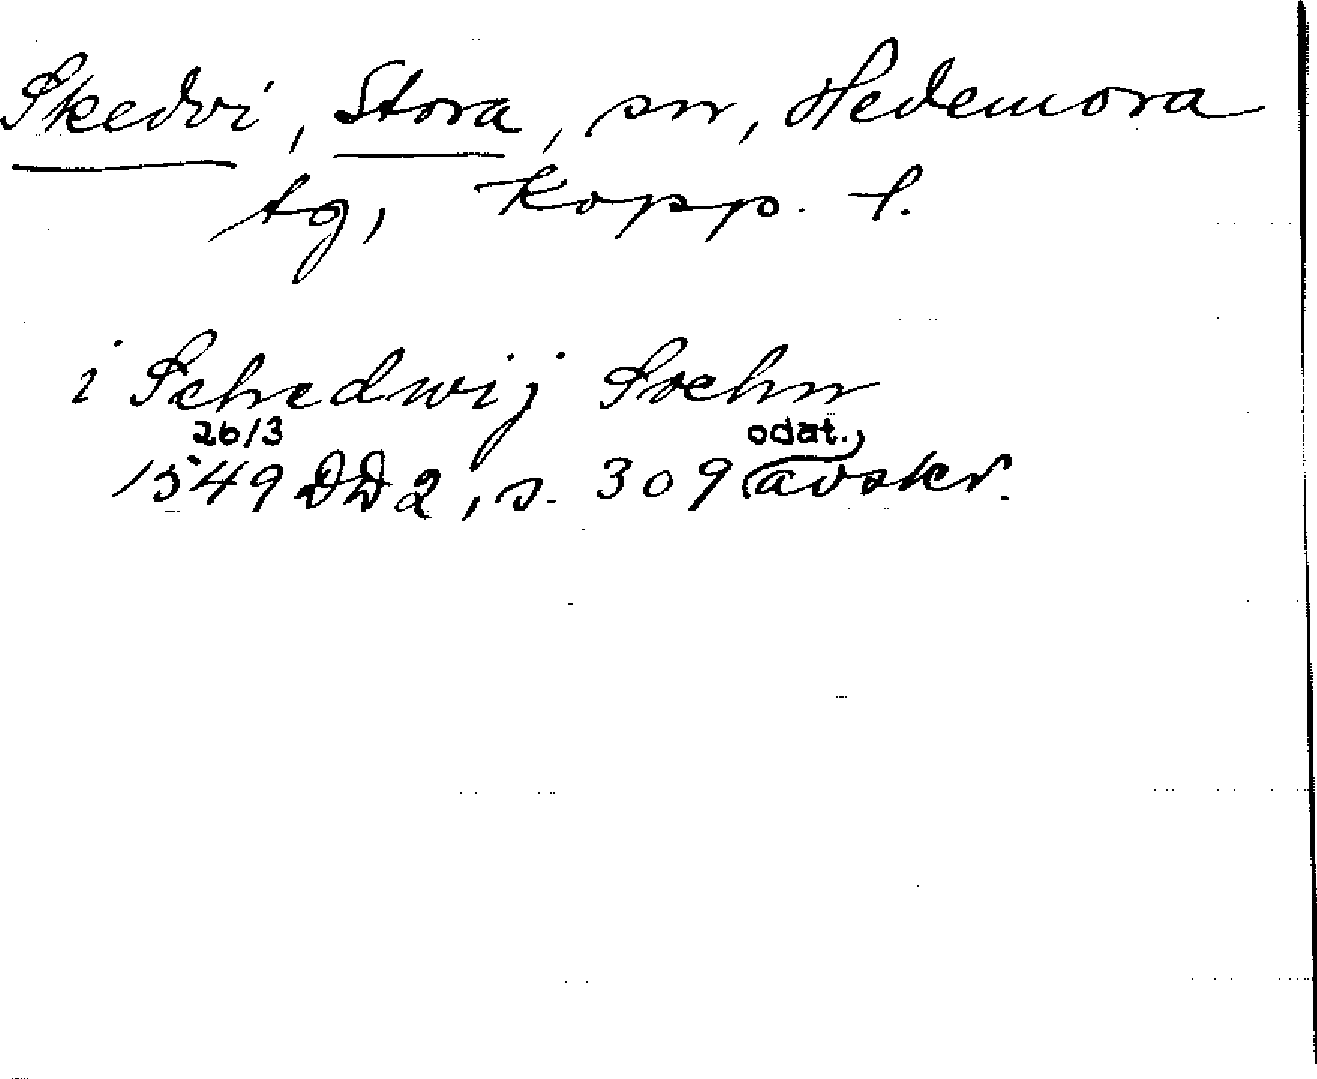 Skedvi, Stora, sn, Hedemora
tg, Kopp. l.
i Schedwij Sochn
26/3 odat.,
1549 DD 2, s. 309 avskr.